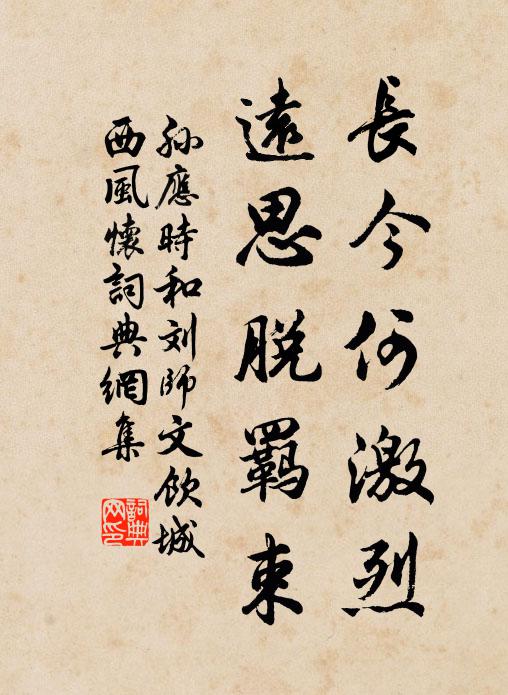 長今何激烈
遠思脫羈束
孙應時和刘師文飲城
西風懷詞典網集
詞典
网印